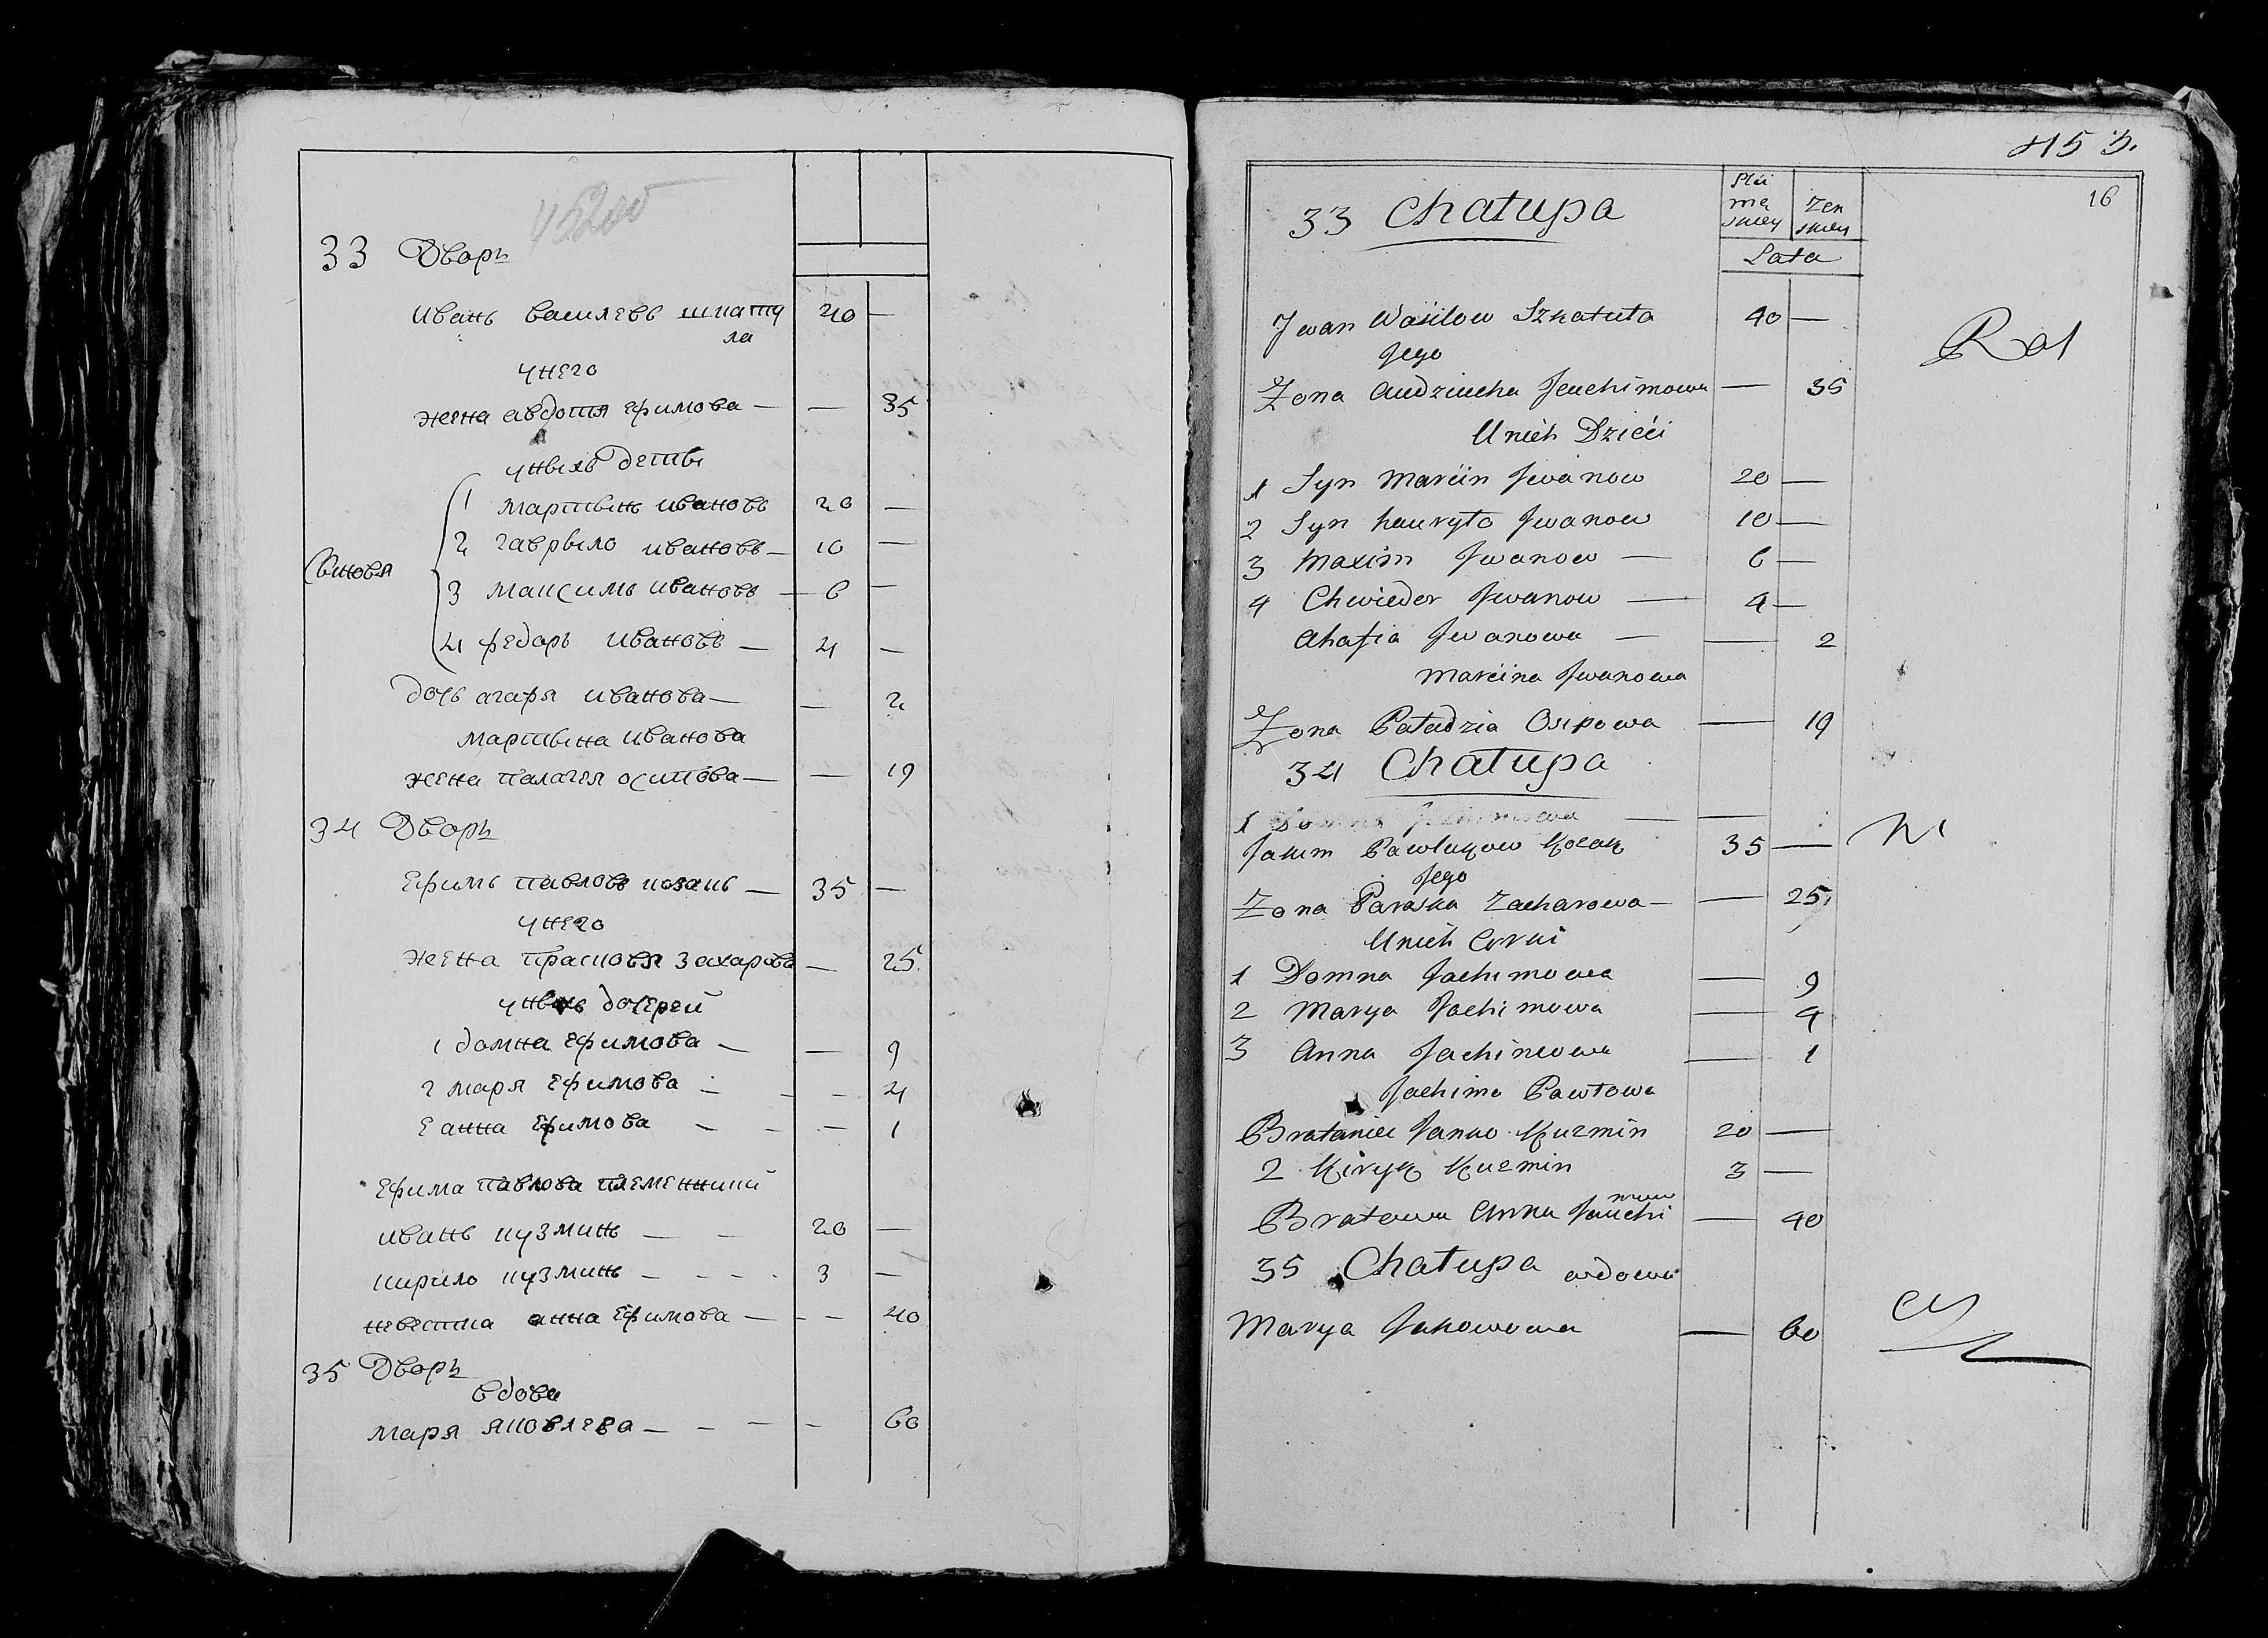 33 Дворъ
Иванъ Василевъ шкату 40 —
ла
унего
жена авдотя Ефимова — — 35
унвихъ детви
1 мартвинъ ивановъ 20 —
2 гаврвило ивановъ — 10 —
Свиновя
3 максимъ ивановъ — 6 —
4 федоръ ивановъ — 4 —
дочь агафя иванова — — 2
мартвина иванова
жена палагея осипова — — 19
34 Дворъ
Ефимъ павловъ козакъ — 35 —
унего
жена прасковя захарова — 25
унвихъ дочерей
1 домна Ефимова — — 9
2 маря Ефимова — — 4
3 анна Ефимова — — 1
Ефима павлова племенники
иванъ кузминъ — — 20 —
кирило кузминъ — — 3 —
невестка анна Ефимова — — 40
35 Дворъ
вдова
маря яковлева — — 60
453.
16
33 Chałupa
Płci
mę zen
skiey skiey
Lata
Jwan Wasilow Szkatuła 40 —
Jego
Zona Audziucha Jeuchimowa — 35
Unich Dzieci
1 Syn Marcin Jwanow 20 —
2 Syn hauryło Jwanow 10 —
3 Maxim Jwanow — 6 —
4 Chwiedor Jwanow — 4 —
Ahafia Jwanowa — — 2
Marcina Jwanowa
Zona Paładzia Osipowa — 19
34 Chałupa
Jakim Pawlukow Kozak 35 —
Jego
Zona Paraska Zacharowa — — 25
Unich Corki
1 Domna Jachimowa — 9
2 Marya Jachimowa — 4
3 Anna Jachimowa — 1
Jachima Pawłowa
Bratanici Janko Kuzmin 20 —
2 Kiryk Kuzmin 3 —
Bratowa Anna — 40
35 Chałupa wdowa
Marya Jakowowa — 60